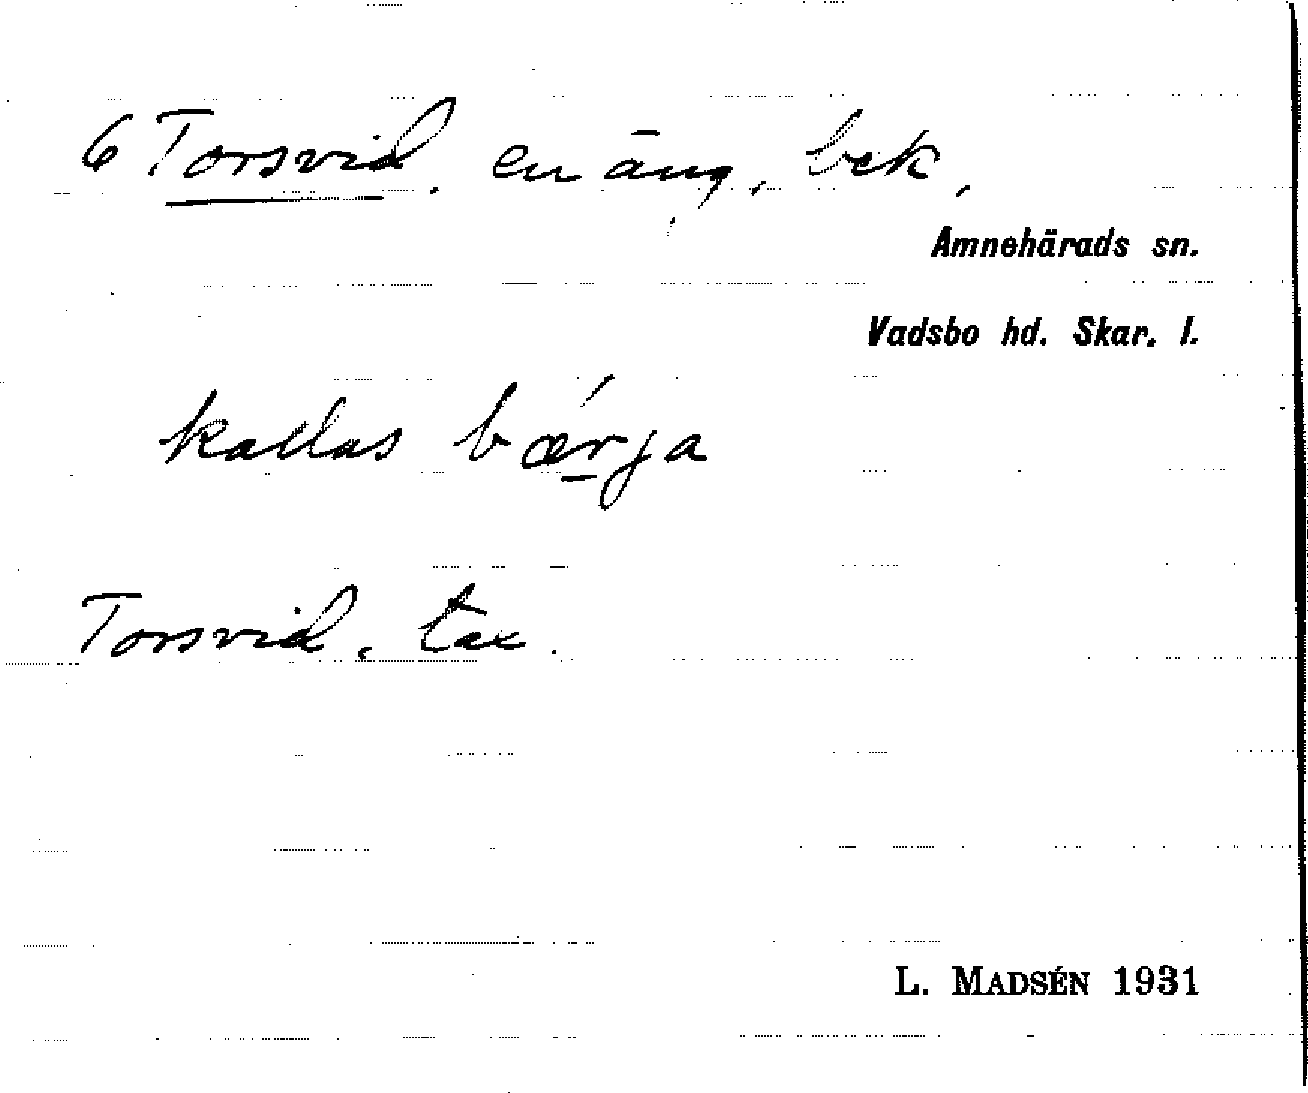 6 Torsvid, en äng, bek,
Amnehärads sn.
Vadsbo hd. Skar. l.
kallas bǽrja
Torsvid, tax.
L. MADSÉN 1931